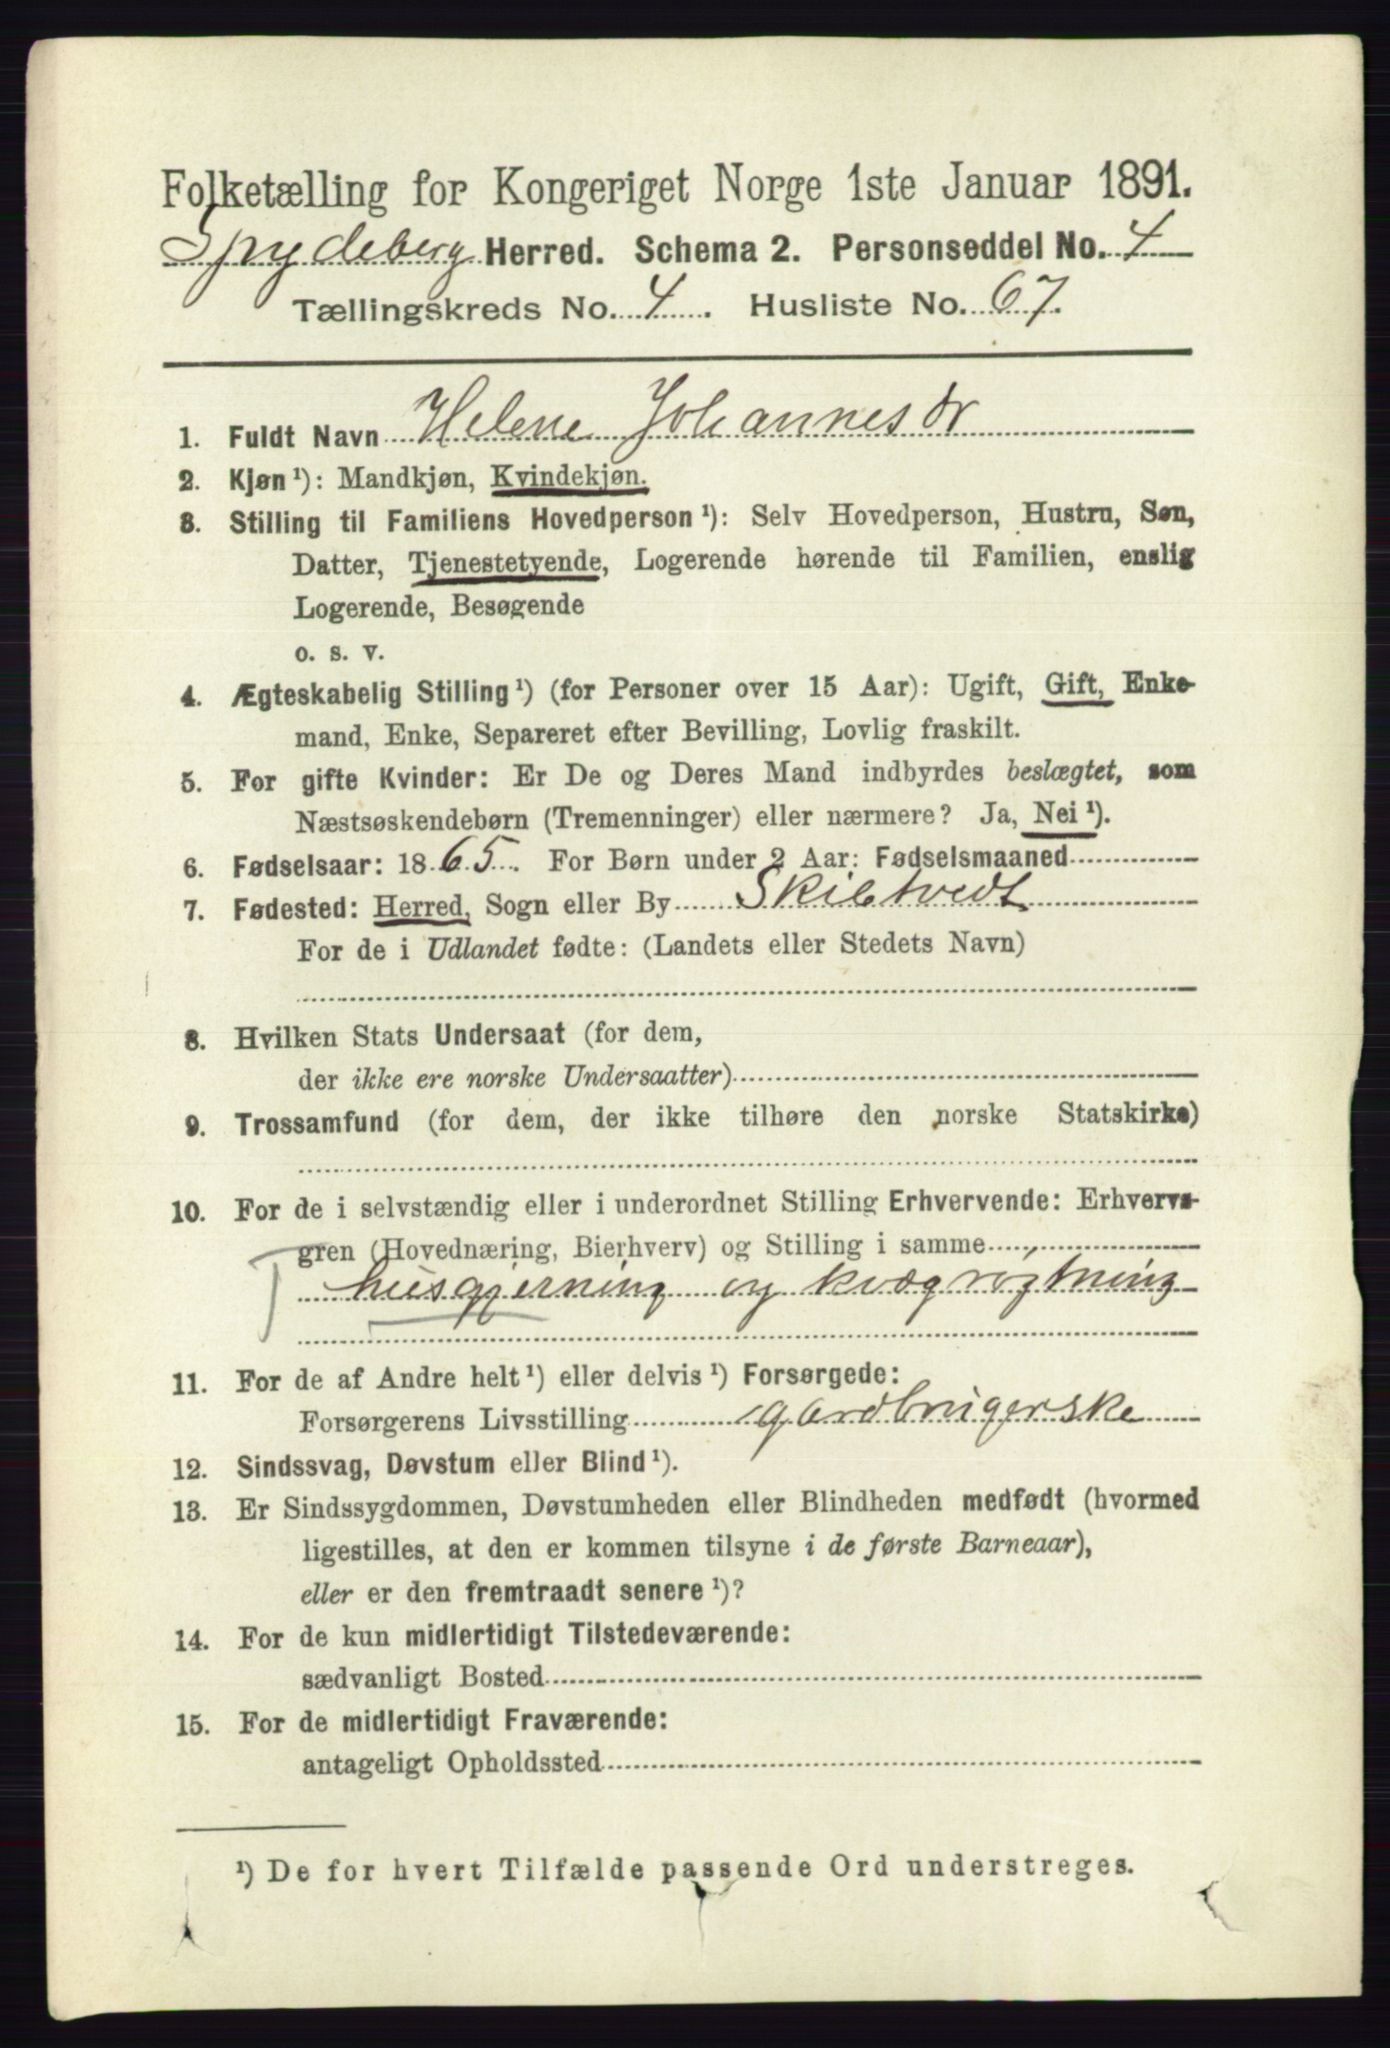 Folketælling for Kongeriget Norge 1ste Januar 1891.
Spydeberg Herred. Schema 2. Personseddel No. 4
Tællingskreds No. 4. Husliste No. 67.
1. Fuldt Navn Helene Johannesdr
2. Kjøn ¹): Mandkjøn, Kvindekjøn.
3. Stilling til Familiens Hovedperson ¹): Selv Hovedperson, Hustru, Søn,
Datter, Tjenestetyende, Logerende hørende til Familien, enslig
Logerende, Besøgende
o. s. v.
4. Ægteskabelig Stilling ¹) (for Personer over 15 Aar): Ugift, Gift, Enke-
mand, Enke, Separeret efter Bevilling, Lovlig fraskilt.
5. For gifte Kvinder: Er De og Deres Mand indbyrdes beslægtet, som
Næstsøskendebørn (Tremenninger) eller nærmere? Ja, Nei ¹).
6. Fødselsaar: 1865. For Børn under 2 Aar: Fødselsmaaned
7. Fødested: Herred, Sogn eller By Skibtvedt
For de i Udlandet fødte: (Landets eller Stedets Navn)
8. Hvilken Stats Undersaat (for dem,
der ikke ere norske Undersaatter)
9. Trossamfund (for dem, der ikke tilhøre den norske Statskirke)
10. For de i selvstændig eller i underordnet Stilling Erhvervende: Erhvervs-
gren (Hovednæring, Bierhverv) og Stilling i samme
T husgjerning og kvægrøgtning
11. For de af Andre helt ¹) eller delvis ¹) Forsørgede:
Forsørgerens Livsstilling gardbrugerske
12. Sindssvag, Døvstum eller Blind ¹).
13. Er Sindssygdommen, Døvstumheden eller Blindheden medfødt (hvormed
ligestilles, at den er kommen tilsyne i de første Barneaar),
eller er den fremtraadt senere ¹)?
14. For de kun midlertidigt Tilstedeværende:
sædvanligt Bosted
15. For de midlertidigt Fraværende:
antageligt Opholdssted
¹) De for hvert Tilfælde passende Ord understreges.